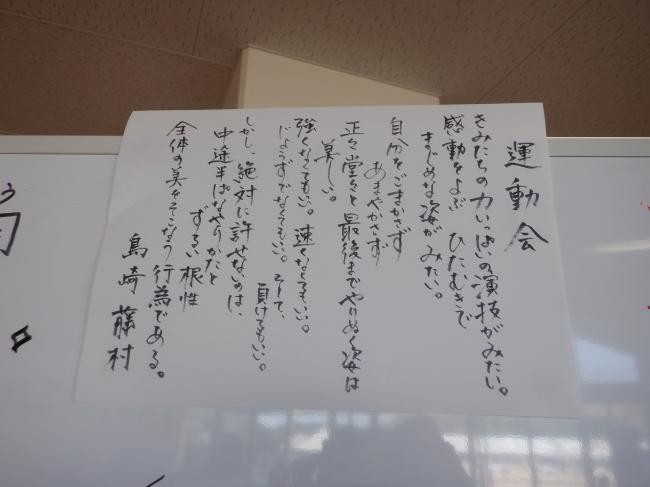 運動会
きみたちの力いっぱいの演技がみたい。
感動をよぶ ひたむきで
まじめな姿がみたい。
自分をごまかさず
あまやかさず
正々堂々と最後までやりぬく姿は
美しい。
強くなくてもいい。速くなくてもいい。
じょうずでなくてもいい。そして、
負けてもいい。
しかし、絶対に許せないのは、
中途半ぱなやりかたと
ずるい根性
全体の美をそこなう行為である。
島崎藤村